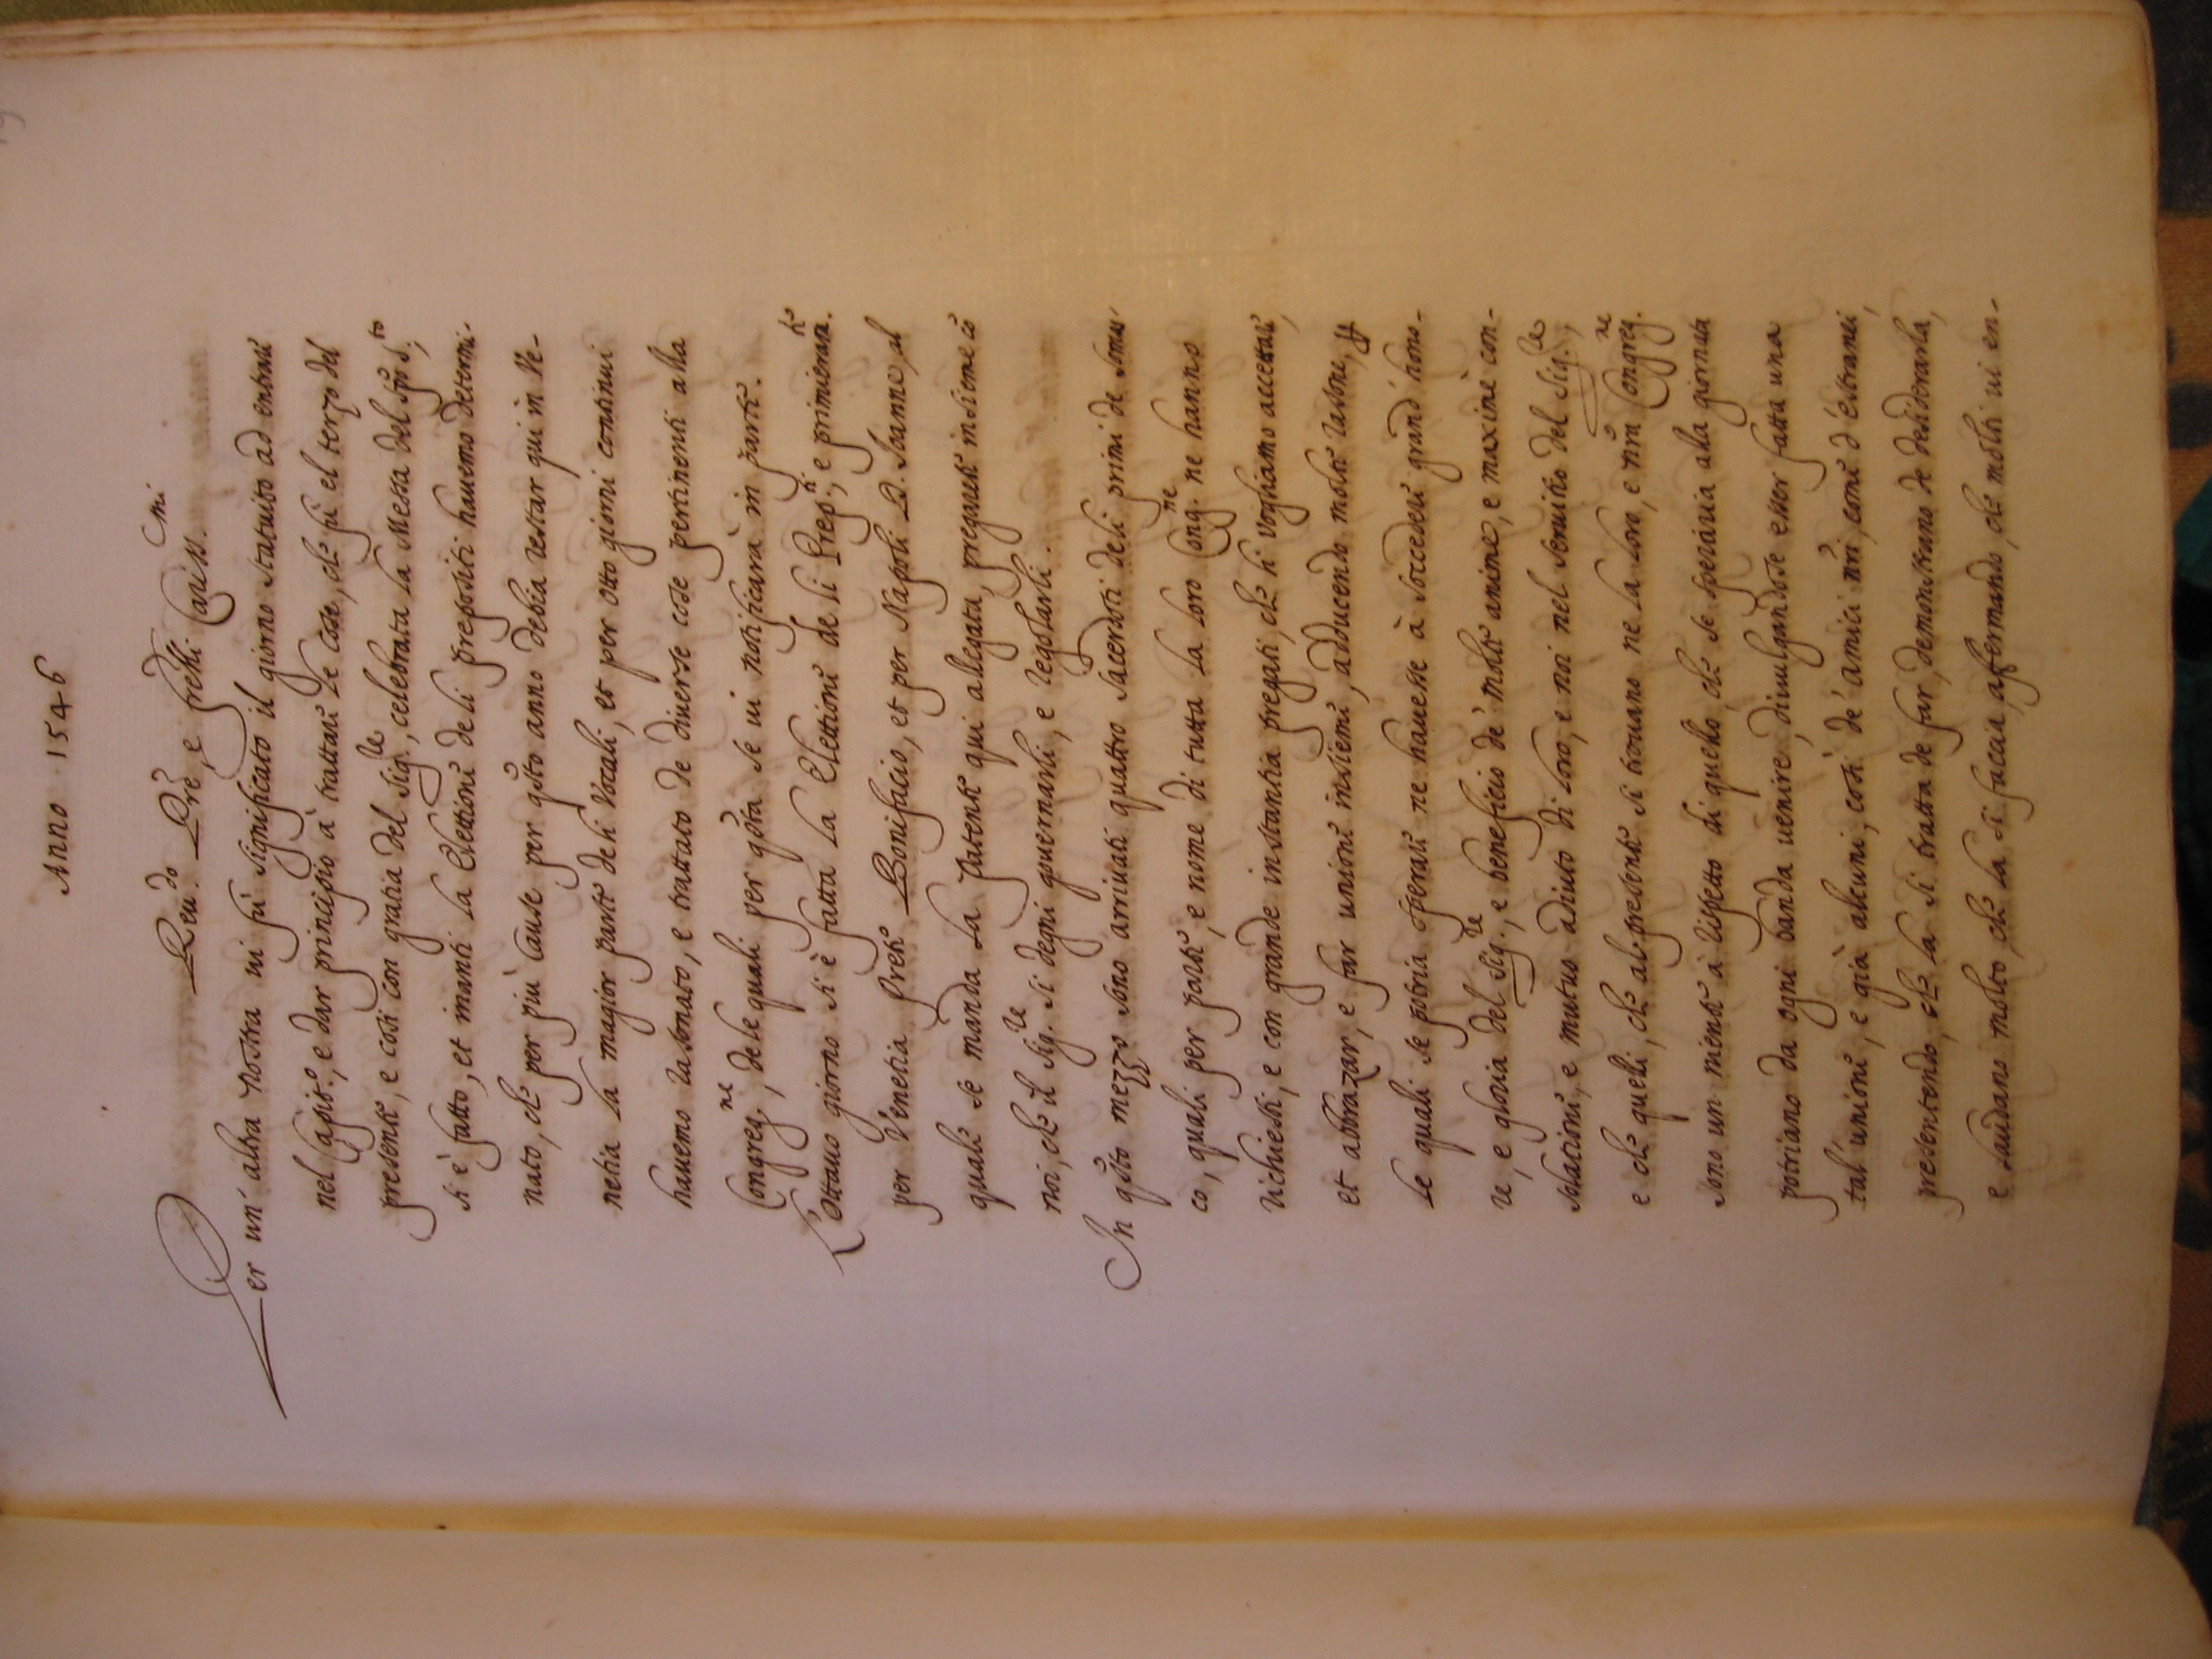 Anno 1546
Reu.do Pre, e frelli Cariss.mi
Per un' altra nostra ui fù significato il giorno statuito ad entrare
nel Capit.o, e dar principio à trattare le cose, che fù el terzo del
presente, e così con gratia del Sig.re, celebrata la Messa del Spo s.to,
si è fatto, et inanti la Elettione de li prepositi hauemo determi-
nato, che per più cause per qsto anno debia restar qui in Ve-
netia la magior parte de li Vocali, et per otto giorni continui
hauemo rasonato, e trattato de diuerse cose pertinenti alla
Congreg.ne, de le quali per qsta se ui notificarà in parte.
L'ottauo giorno si è fatta la Elettione de li Prep.ti, e primieram.te
per Venetia Prete Bonifacio, et per Napoli D. Joanne, al
quale se manda la patente qui alegata, pregarete insieme cō
noi, che il Sig.re si degni gouernarli, e regolarli.
In qsto mezzo sono arriuati quattro sacerdoti deli primi de Somas-
co, quali per parte, e nome di tutta la loro Cong.ne ne hanno
richiesti, e con grande instantia pregati, che li vogliamo accettare,
et abbrazar, e far unione insieme, adducendo molte rasone, per
le quali se potria sperare ne hauesse à soccedere grand' hono-
re, e gloria del Sig.re, e beneficio de' molte anime, e maxime con-
solatione, e mutuo adiuto di loro, e noi nel seruitio del Sig.re,
e che quelli, che al presente si trouano ne la loro, e nra Congreg.ne
sono un niente à rispetto di quello, che se speraria ala giornata
potriano da ogni banda uenire, diuulgandose esser fatta una
tal' unione, e già alcuni, così de' amici nri, come d' estranei,
presentendo, che la si tratta de far, demonstrano de desiderarla,
e laudano molto, che la si faccia, affermando, che molti ui en-